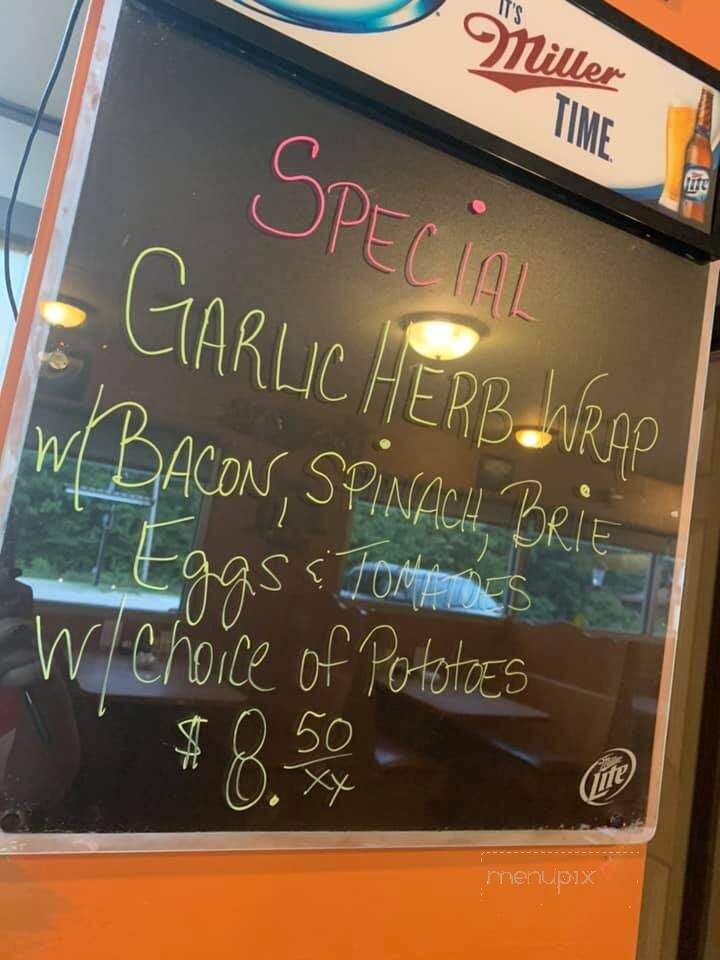 IT'S
Miller
TIME
Lite
SPECIAL
GARLIC HERB WRAP
W/BACON, SPINACH, BRIE
Eggs & TOMATOES
W/choice of PototoES
$8.50/xx
Lite
menupix